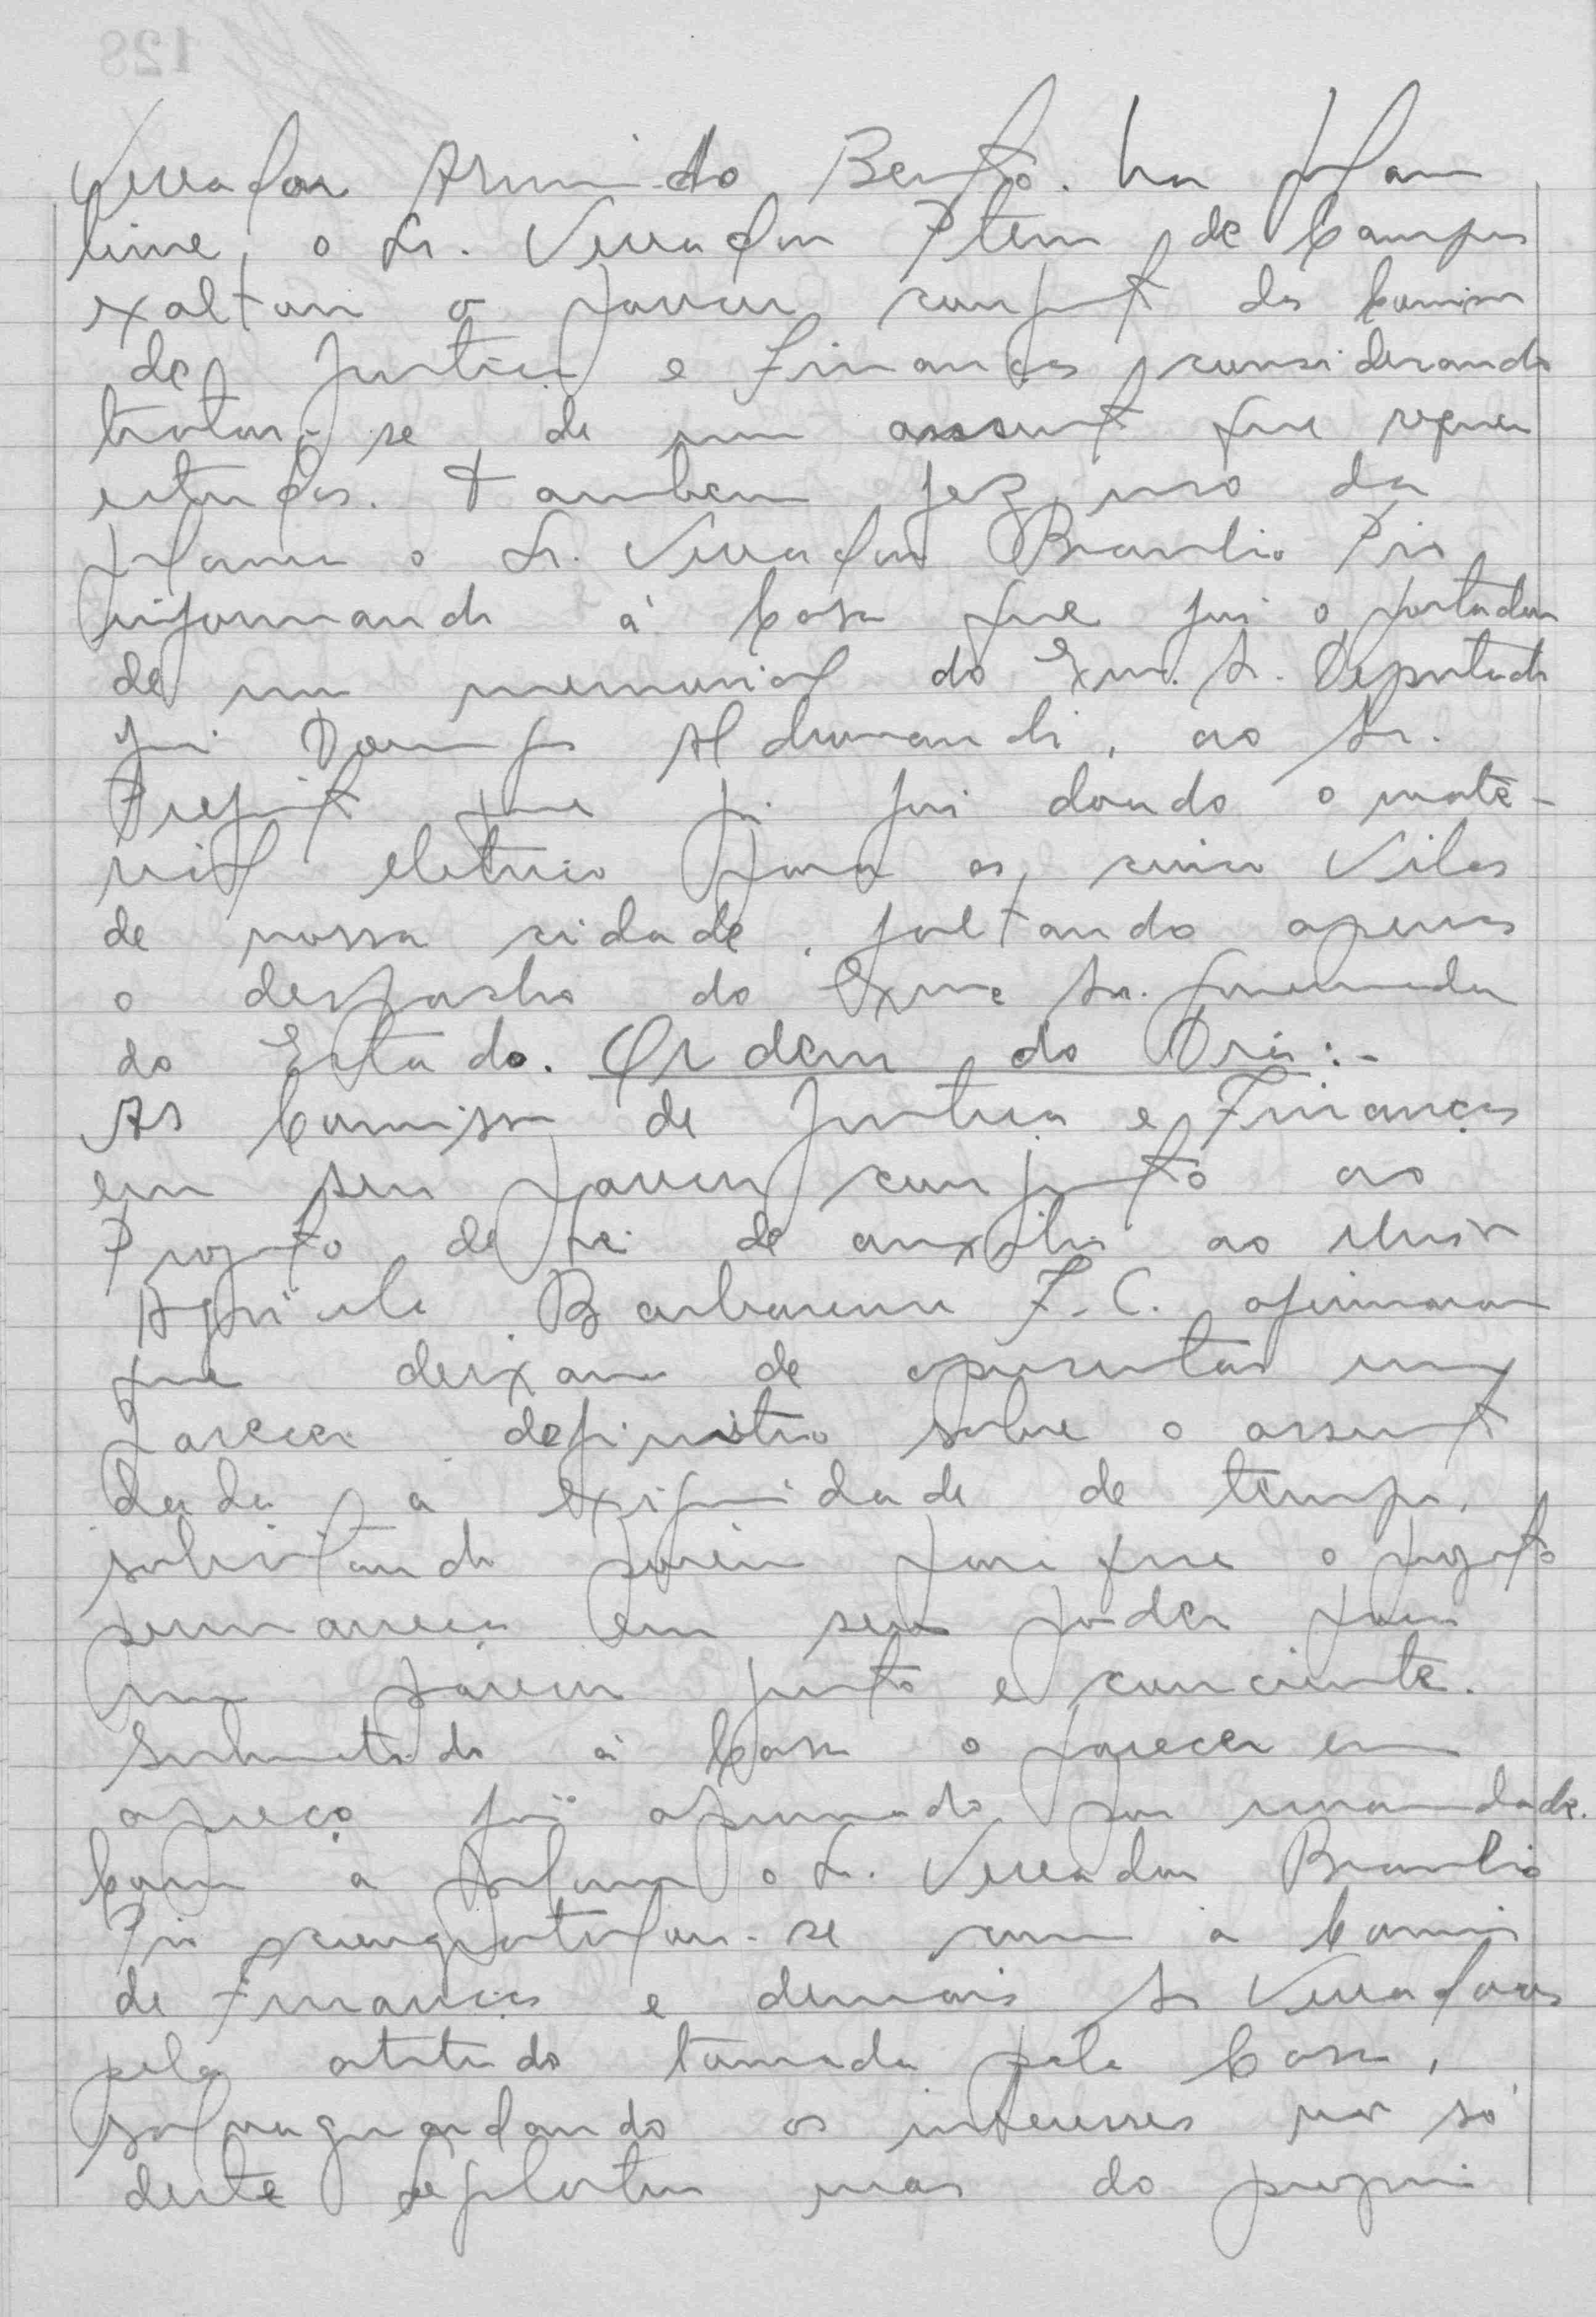 Vereador Armindo Bento. Na pala
livre, o Sr. Vereador de Campos
exaltou o parecer conjunto da Comissão
de Justiça e Finanças, considerando
tratar-se de um assunto que requer
estudos. Também fez uso da
palavra o Sr. Vereador Braulio Pio
informando à Casa que foi o portador
de um memorial do Exmo. Sr. Deputado
Aldrovandi, ao Sr.
Prefeito que já foi doado o maté-
rial eletrico para as cinco Vilas
de nossa cidade, faltando apenas
o despacho do Exmo Sr. Governador
do Estado. Ordem do Dia:-
As Comissão de Justiça e Finanças
em seu parecer conjunto ao
Projeto de Lei de auxilio ao União
Agricola Barbarense F.C. afirmaram
que deixam de apresentar um
parecer definitivo sobre o assunto
dada a exiguidade de tempo,
solicitando porém para que o projeto
permaneça em seu poder para
um parecer justo e conciente.
Submetido à Casa o parecer em
apreço foi aprovado por unanimidade.
Com a palavra o Sr. Vereador Braulio
Pio congratulou-se com a Comissão
de Finanças e demais Srs Vereadores
pela atitude tomada pela Casa,
salvaguardando os interesses não só
deste legislativo mas do proprio